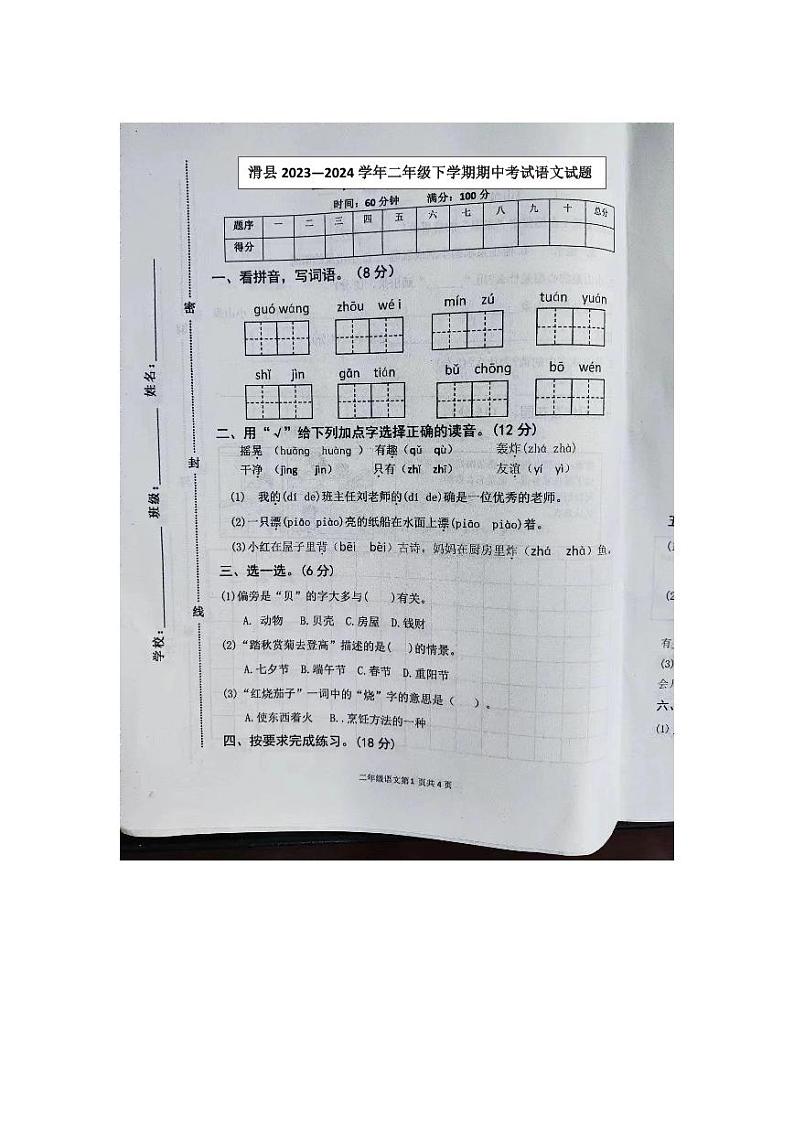 滑县 2023—2024 学年二年级下学期期中考试语文试题
时间：60 分钟 满分：100 分
题序 一 二 三 四 五 六 七 八 九 十 总分
得分
一、看拼音，写词语。（8 分）
guó wáng zhōu wé i mín zú tuán yuán
shǐ jìn gǎn tián bǔ chōng bō wén
二、用“√”给下列加点字选择正确的读音。(12 分)
摇晃 （huǎng huàng ） 有趣（qǔ qù） 轰炸(zhá zhà)
干净 （jìng jìn） 只有（zhǐ zhī） 友谊（yí yì）
(1) 我的(dí de)班主任刘老师的(dí de)确是一位优秀的老师。
(2)一只漂(piāo piào)亮的纸船在水面上漂(piāo piào)着。
(3)小红在屋子里背（bēi bèi）古诗，妈妈在厨房里炸（zhá zhà）鱼。
三、选一选。(6 分)
(1)偏旁是“贝”的字大多与( )有关。
A. 动物 B.贝壳 C.房屋 D.钱财
(2)“踏秋赏菊去登高”描述的是( )的情景。
A.七夕节 B.端午节 C.春节 D.重阳节
(3)“红烧茄子”一词中的“烧”字的意思是（ ）。
A.使东西着火 B..烹饪方法的一种
四、按要求完成练习。(18 分)
二年级语文第 1 页共 4 页
学校：
班级：
姓名：
密
封
线
五
(2
有
(3)
会
六、
(1)